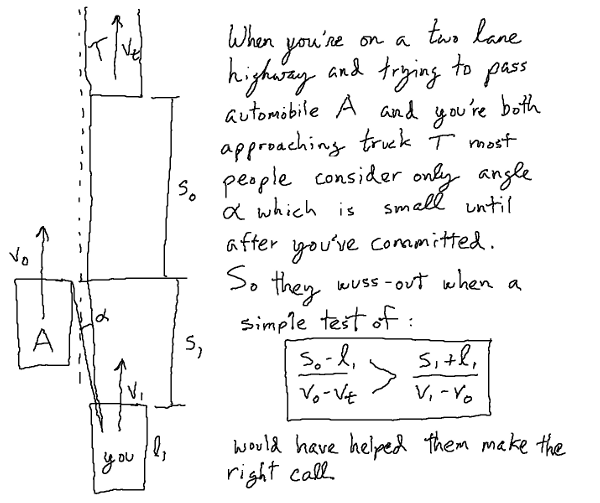 T V_t
S_0
V_0
α
A
S_1
V_1
you l_1
When you're on a two lane
highway and trying to pass
automobile A and you're both
approaching truck T most
people consider only angle
α which is small until
after you've committed.
So they wuss-out when a
simple test of:
(S_0 - l_1)/(V_0 - V_t) > (S_1 + l_1)/(V_1 - V_0)
would have helped them make the
right call.